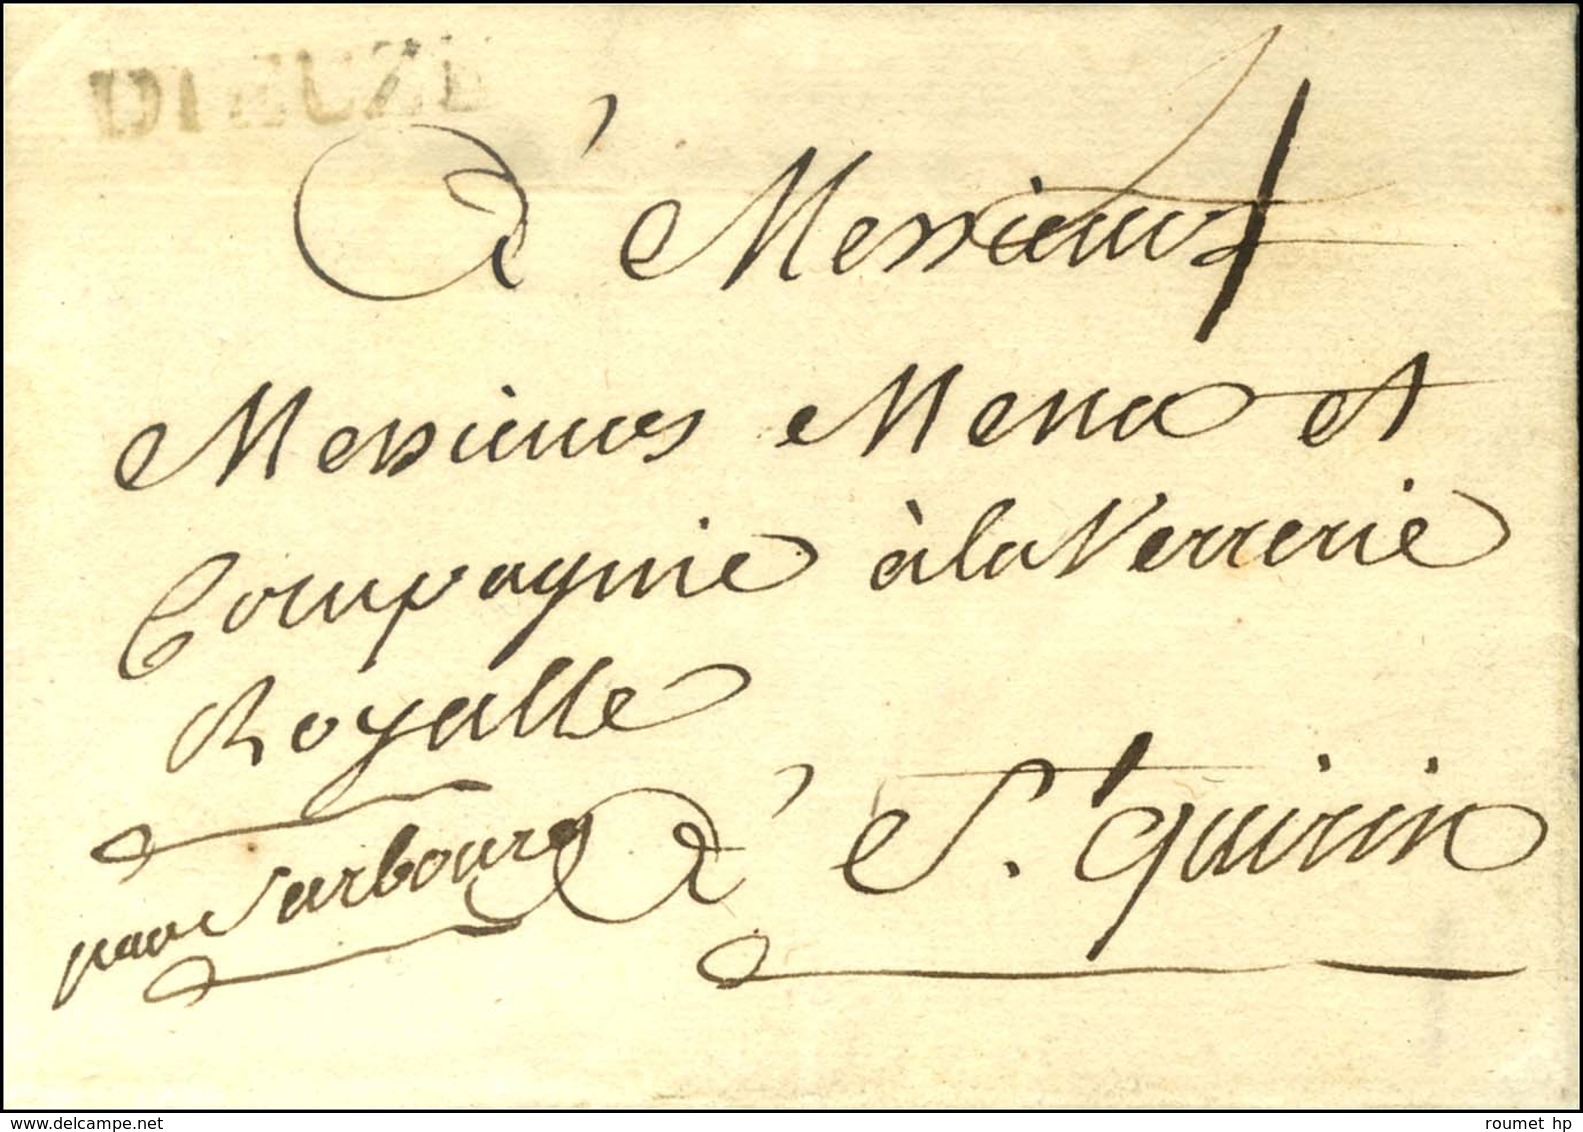 DIEUZE
à Messieurs 4
Messieurs Mena et
Compagnie à la Verrerie
Royalle
par Sarbourg à St. quirin
delcampe.net
roumet hp